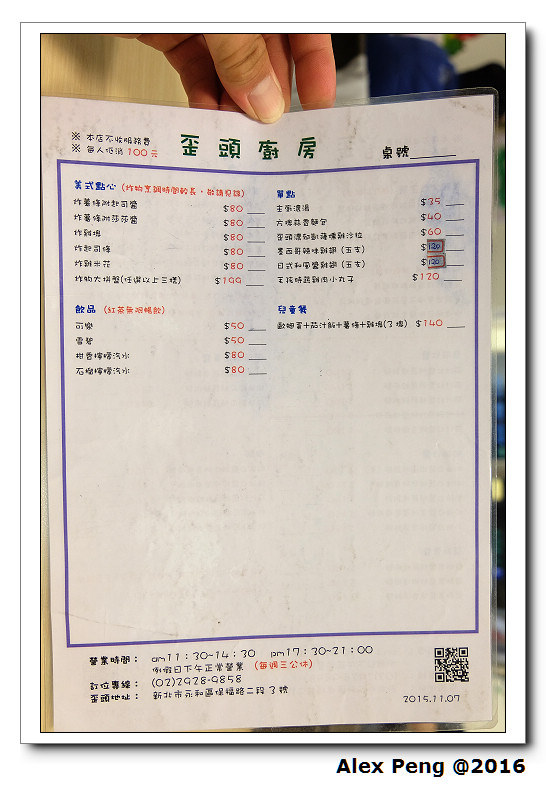 ※ 本店不收服務費
※ 每人低消 100元
歪頭廚房
桌號
美式點心 (炸物烹調時間較長,敬請見諒)
炸薯條附起司醬 $80
炸薯條附莎莎醬 $80
炸雞塊 $80
炸起司條 $80
炸雞米花 $80
炸物大拼盤(任選以上三樣) $199
飲品 (紅茶無限暢飲)
可樂 $50
雪碧 $50
柑香檸檬汽水 $80
石榴檸檬汽水 $80
單點
主廚濃湯 $35
方塊蒜香麵包 $40
歪頭濃郁凱薩燻雞沙拉 $60
墨西哥辣味雞翅 (五支) $120
日式和風醬雞翅 (五支) $120
王孩時蔬雞肉小丸子 $120
兒童餐
歐姆蛋+茄汁飯+薯條+雞塊(3塊) $140
營業時間: am11:30~14:30 pm17:30~21:00
例假日下午正常營業 (每週三公休)
訂位專線: (02)2928-9858
歪頭地址: 新北市永和區保福路二段3號
2015.11.07
Alex Peng @2016